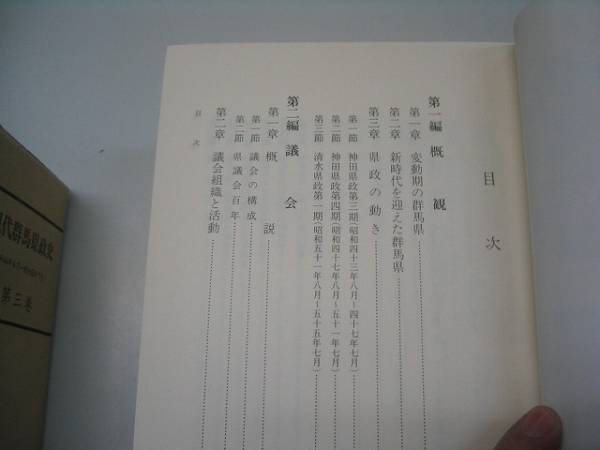 目次
第一編 概観
第一章 変動期の群馬県
第二章 新時代を迎えた群馬県
第三章 県政の動き
第一節 神田県政第三期(昭和四十三年八月~四十七年七月)
第二節 神田県政第四期(昭和四十七年八月~五十一年七月)
第三節 清水県政第一期(昭和五十一年八月~五十五年七月)
第二編 議会
第一章 概説
第一節 議会の構成
第二節 県議会百年
第二章 議会組織と活動
目次
代群馬県政史
第三巻